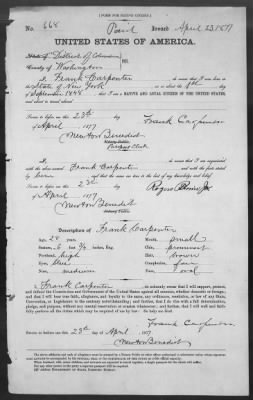 [FORM FOR NATIVE CITIZEN.]
No. 668 Paid Issued April 23 1877
UNITED STATES OF AMERICA.
State of District of Columbia
County of Washington
I, Frank Carpenter, do swear that I was born in the
State of New York on or about the day of
September 1848, that I am a NATIVE AND LOYAL CITIZEN OF THE UNITED STATES,
and about to travel abroad.
Sworn to before me this 23d
day of April 1877 Frank Carpenter
Newton Benedict
Notary Public
I, do swear that I am acquainted
with the above-named Frank Carpenter and with the facts stated by
him and that the same are true to the best of my knowledge and belief.
Sworn to before me this 23d
day of April 1877
Newton Benedict
Notary Public
Description of Frank Carpenter
Age, 28 years Mouth, small
Stature, 5 feet inches Chin, prominent
Forehead, high Hair, brown
Eyes, blue Complexion, fair
Nose, medium Face, oval
I, Frank Carpenter, do solemnly swear that I will support, protect,
and defend the Constitution and Government of the United States against all enemies, whether domestic or foreign,
and that I will bear true faith, allegiance, and loyalty to the same, any ordinance, resolution, or law of any State,
Convention, or Legislature to the contrary notwithstanding; and further, that I do this with a full determination,
pledge, and purpose, without any mental reservation or evasion whatsoever; and further, that I will well and faithfully
perform all the duties which may be required of me by law: So help me God.
Frank Carpenter
Sworn to before me this 23d day of April 1877
Newton Benedict